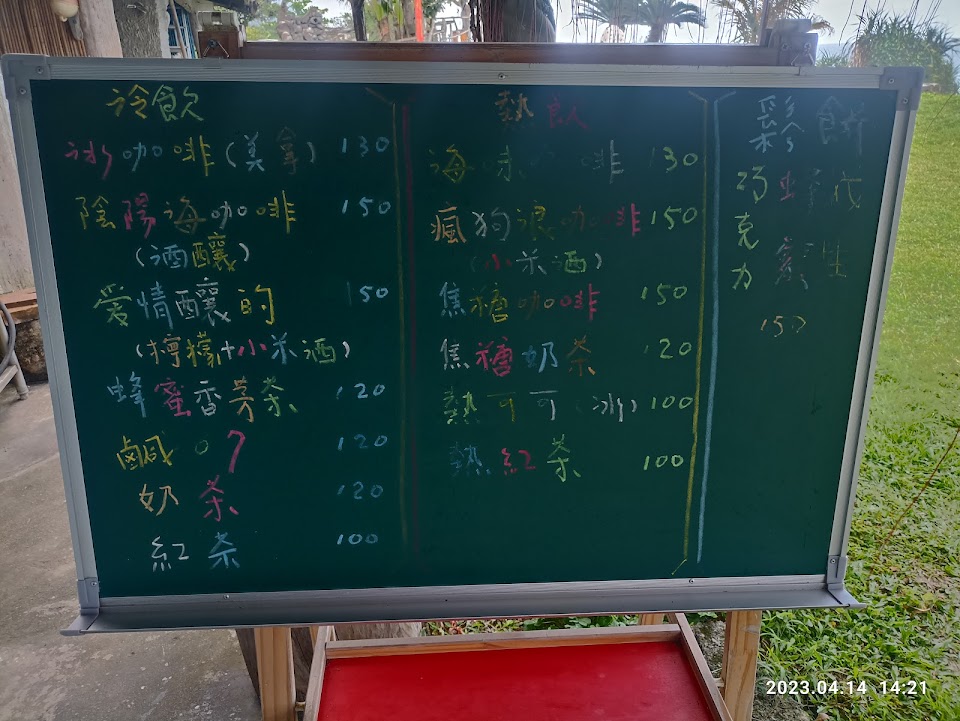 冷飲
冰咖啡(美拿) 130
陰陽海咖啡 150
(酒釀)
愛情釀的 150
(檸檬+小米酒)
蜂蜜香芳茶 120
鹹。7 120
奶茶 120
紅茶 100
熱飲
海味咖啡 130
瘋狗浪咖啡 150
(小米酒)
焦糖咖啡 150
焦糖奶茶 120
熱可可(冰) 100
熱紅茶 100
鬆餅
巧克力
蜂蜜
150
2023.04.14 14:21